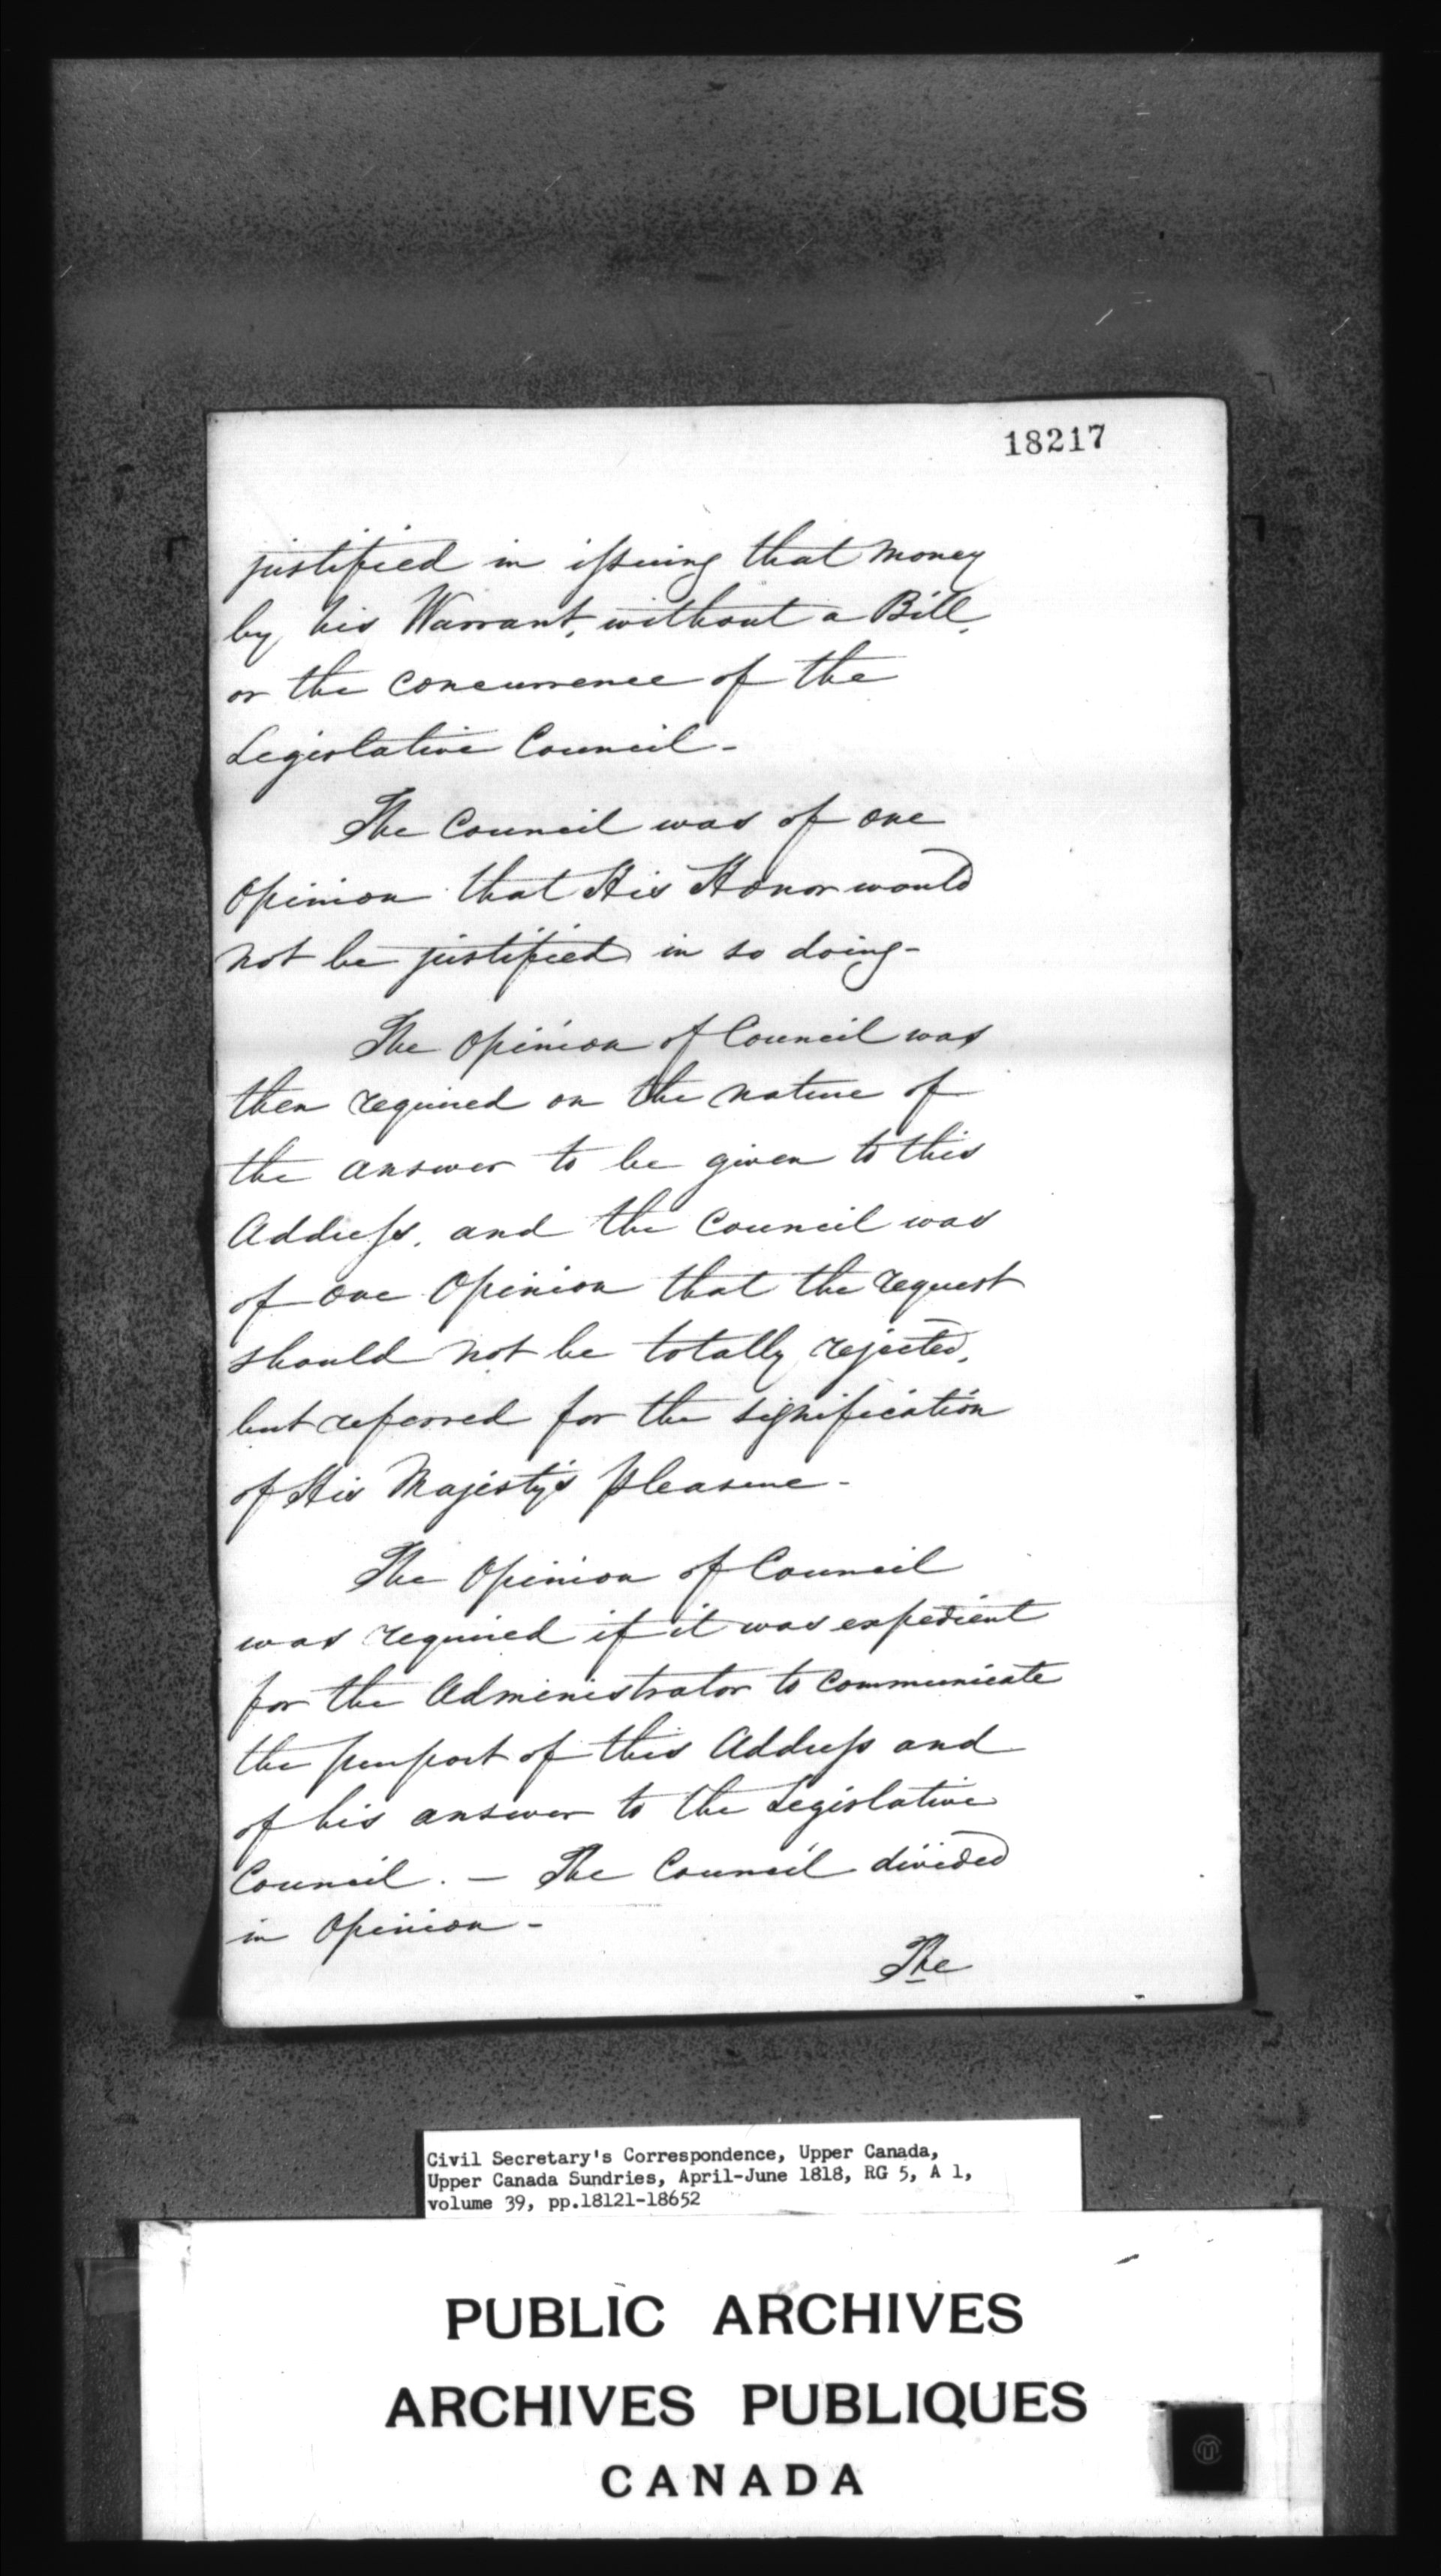 18217
justified in issuing that money
by his Warrant, without a Bill,
or the concurrence of the
Legislative Council -
The Council was of one
Opinion that His Honor would
not be justified in so doing -
The Opinion of Council was
then required on the nature of
the answer to be given to this
Address, and the Council was
of one Opinion that the request
should not be totally rejected,
but referred for the signification
of His Majesty's pleasure -
The Opinion of Council
was required if it was expedient
for the Administrator to communicate
the purport of this Address and
of his answer to the Legislative
Council. - The Council divided
in Opinion -
The
Civil Secretary's Correspondence, Upper Canada,
Upper Canada Sundries, April-June 1818, RG 5, A 1,
volume 39, pp.18121-18652
PUBLIC ARCHIVES
ARCHIVES PUBLIQUES
CANADA